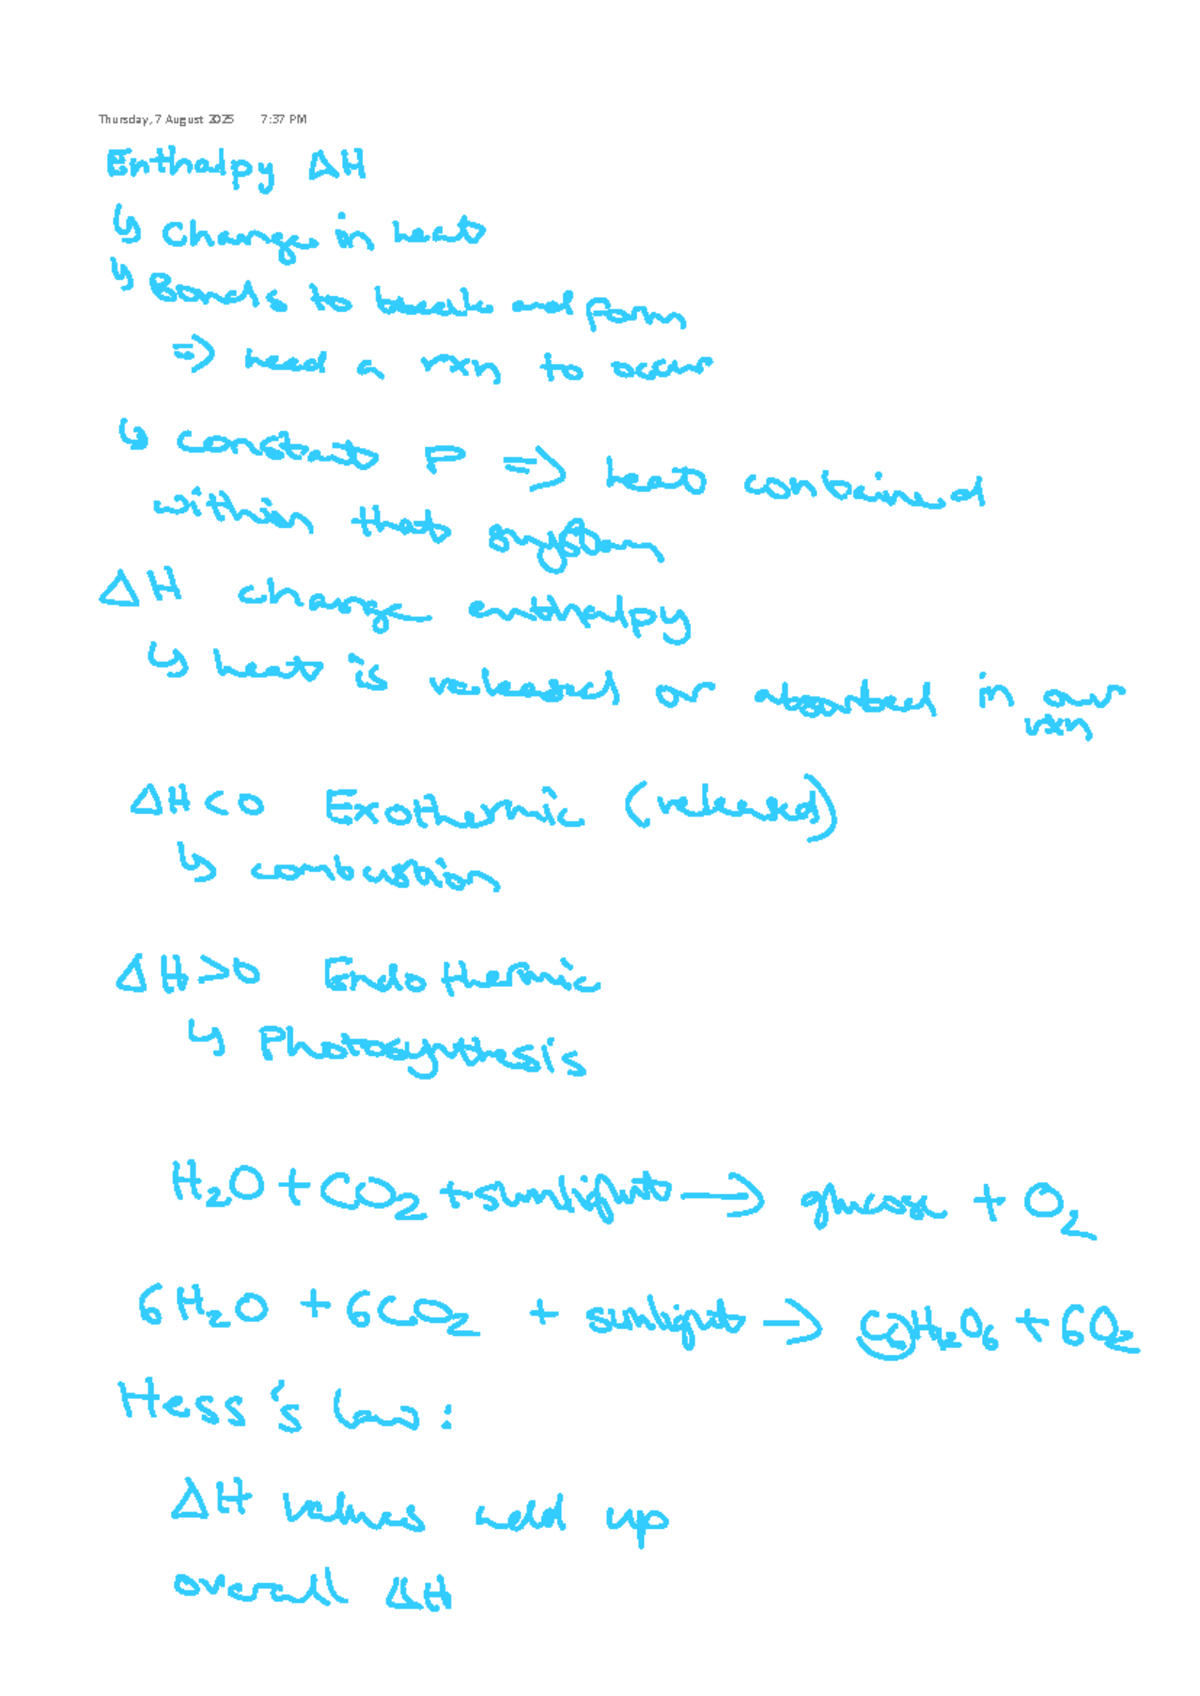 Thursday, 7 August 2025 7:37 PM
Enthalpy ΔH
↳ Change in heat
↳ Bonds to break and form
=> need a rxn to occur
↳ constant P => heat contained
within that system
ΔH change enthalpy
↳ heat is released or absorbed in our
rxn
ΔH<0 Exothermic (released)
↳ combustion
ΔH>0 Endothermic
↳ Photosynthesis
H₂O + CO₂ + sunlight → glucose + O₂
6H₂O + 6CO₂ + sunlight → C₆H₁₂O₆ + 6O₂
Hess's law:
ΔH values add up
overall ΔH